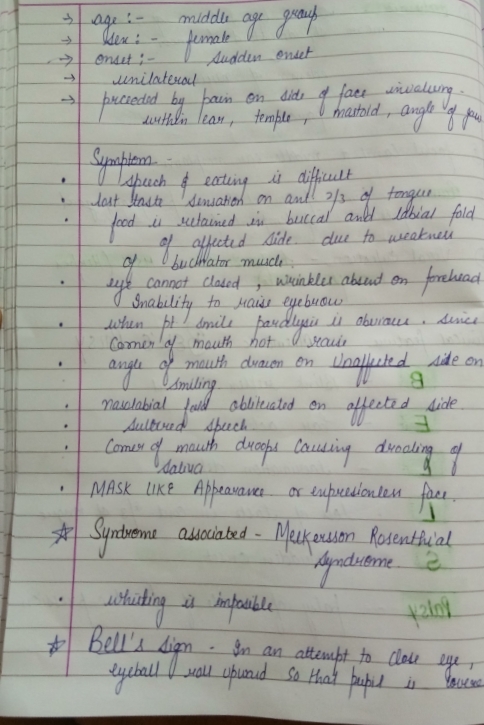 → age :- middle age group
→ sex :- female
→ onset :- sudden onset
→ unilateral
→ preceeded by pain on side of face involving
within ear, temple, mastoid, angle of jaw
Symptom -
• speech & eating is difficult
• lost taste sensation on ant 2/3 of tongue
• food is retained in buccal and labial fold
of affected side due to weakness
of buccinator muscle
• eye cannot closed, wrinkles absent on forehead
Inability to raise eyebrow
• when pt smile paralysis is obvious. since
corner of mouth not raise
• angle of mouth drawn on Unaffected side on
smiling
• nasolabial fold obliterated on affected side.
• slurred speech
• Corner of mouth droops causing drooling of
saliva
• MASK LIKE Appearance or expressionless face.
☆ Syndrome associated - Melkersson Rosenthial
syndrome
• whistling is impossible
☆ Bell's sign - In an attempt to close eye,
eyeball roll upward so that pupil is